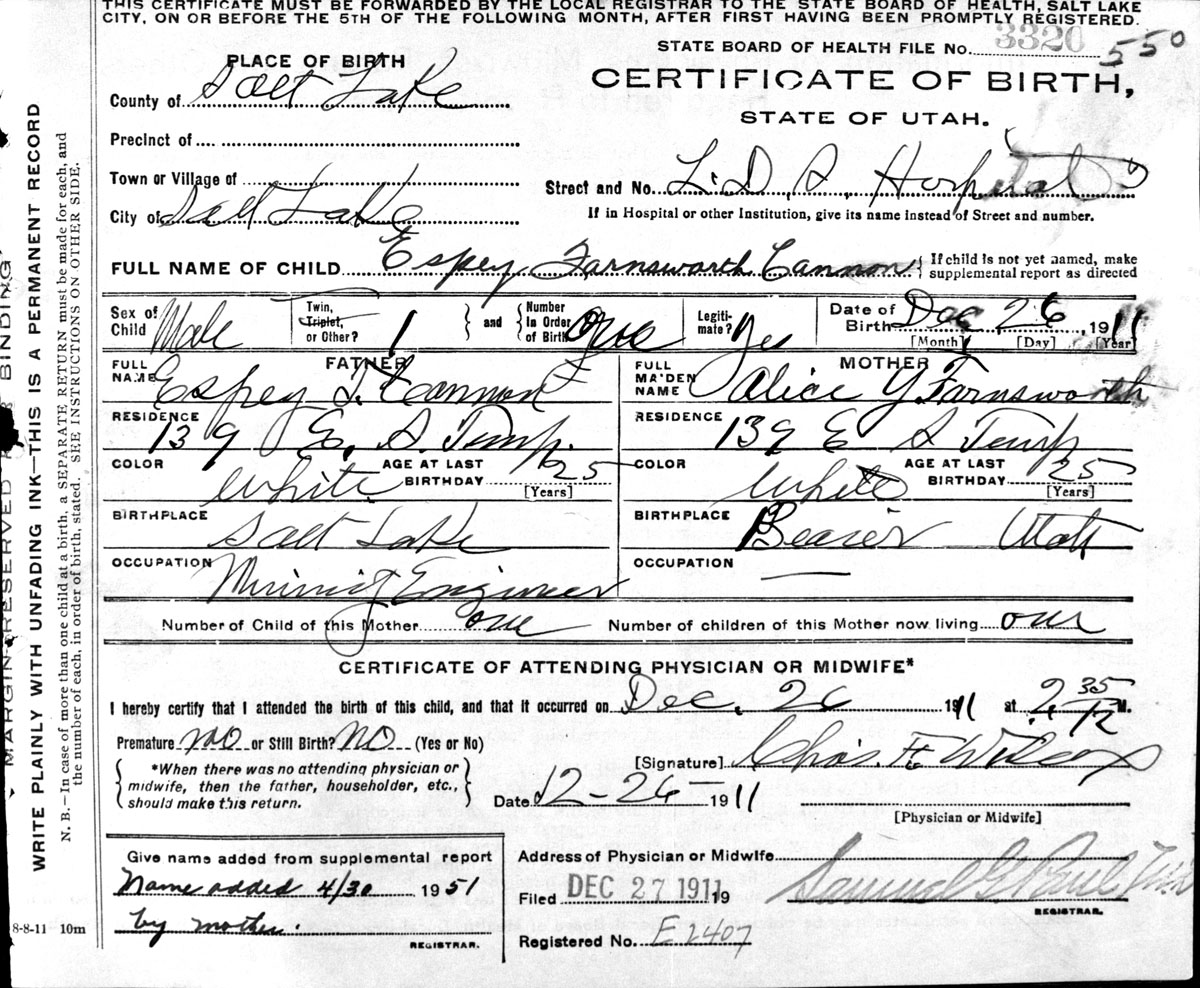 THIS CERTIFICATE MUST BE FORWARDED BY THE LOCAL REGISTRAR TO THE STATE BOARD OF HEALTH, SALT LAKE
CITY, ON OR BEFORE THE 5TH OF THE FOLLOWING MONTH, AFTER FIRST HAVING BEEN PROMPTLY REGISTERED.
STATE BOARD OF HEALTH FILE No. 3320 550
PLACE OF BIRTH
CERTIFICATE OF BIRTH,
STATE OF UTAH.
County of Salt Lake
Precinct of
Town or Village of
Street and No. L. D. S. Hospital
City of Salt Lake
If in Hospital or other Institution, give its name instead of Street and number.
FULL NAME OF CHILD Espey Farnsworth Cannon { If child is not yet named, make supplemental report as directed
Sex of Child Male
Twin, Triplet, or Other? 1 } and { Number in Order of Birth One
Legitimate? Yes
Date of Birth Dec 26, 1911
[Month] [Day] [Year]
FATHER
FULL NAME Espey T. Cannon
RESIDENCE 139 E. S. Temp.
COLOR White AGE AT LAST BIRTHDAY 25 [Years]
BIRTHPLACE Salt Lake
OCCUPATION Mining Engineer
MOTHER
FULL MAIDEN NAME Alice Y. Farnsworth
RESIDENCE 139 E S Temp
COLOR White AGE AT LAST BIRTHDAY 25 [Years]
BIRTHPLACE Beaver Utah
OCCUPATION —
Number of Child of this Mother one Number of children of this Mother now living one
CERTIFICATE OF ATTENDING PHYSICIAN OR MIDWIFE*
I hereby certify that I attended the birth of this child, and that it occurred on Dec. 26 1911 at 2.35 M.
Premature no or Still Birth? No (Yes or No)
[Signature] Chas. F. Wilcox
{ *When there was no attending physician or midwife, then the father, householder, etc., should make this return. }
Date 12-26 1911
[Physician or Midwife]
Give name added from supplemental report
Name added 4/30 1951
by mother.
REGISTRAR.
Address of Physician or Midwife
Filed DEC 27 1911 19
Samuel G. Paul
REGISTRAR.
Registered No. E 2407
8-8-11 10m
MARGIN RESERVED FOR BINDING
WRITE PLAINLY WITH UNFADING INK—THIS IS A PERMANENT RECORD
N. B.—In case of more than one child at a birth, a SEPARATE RETURN must be made for each, and
the number of each, in order of birth, stated. SEE INSTRUCTIONS ON OTHER SIDE.